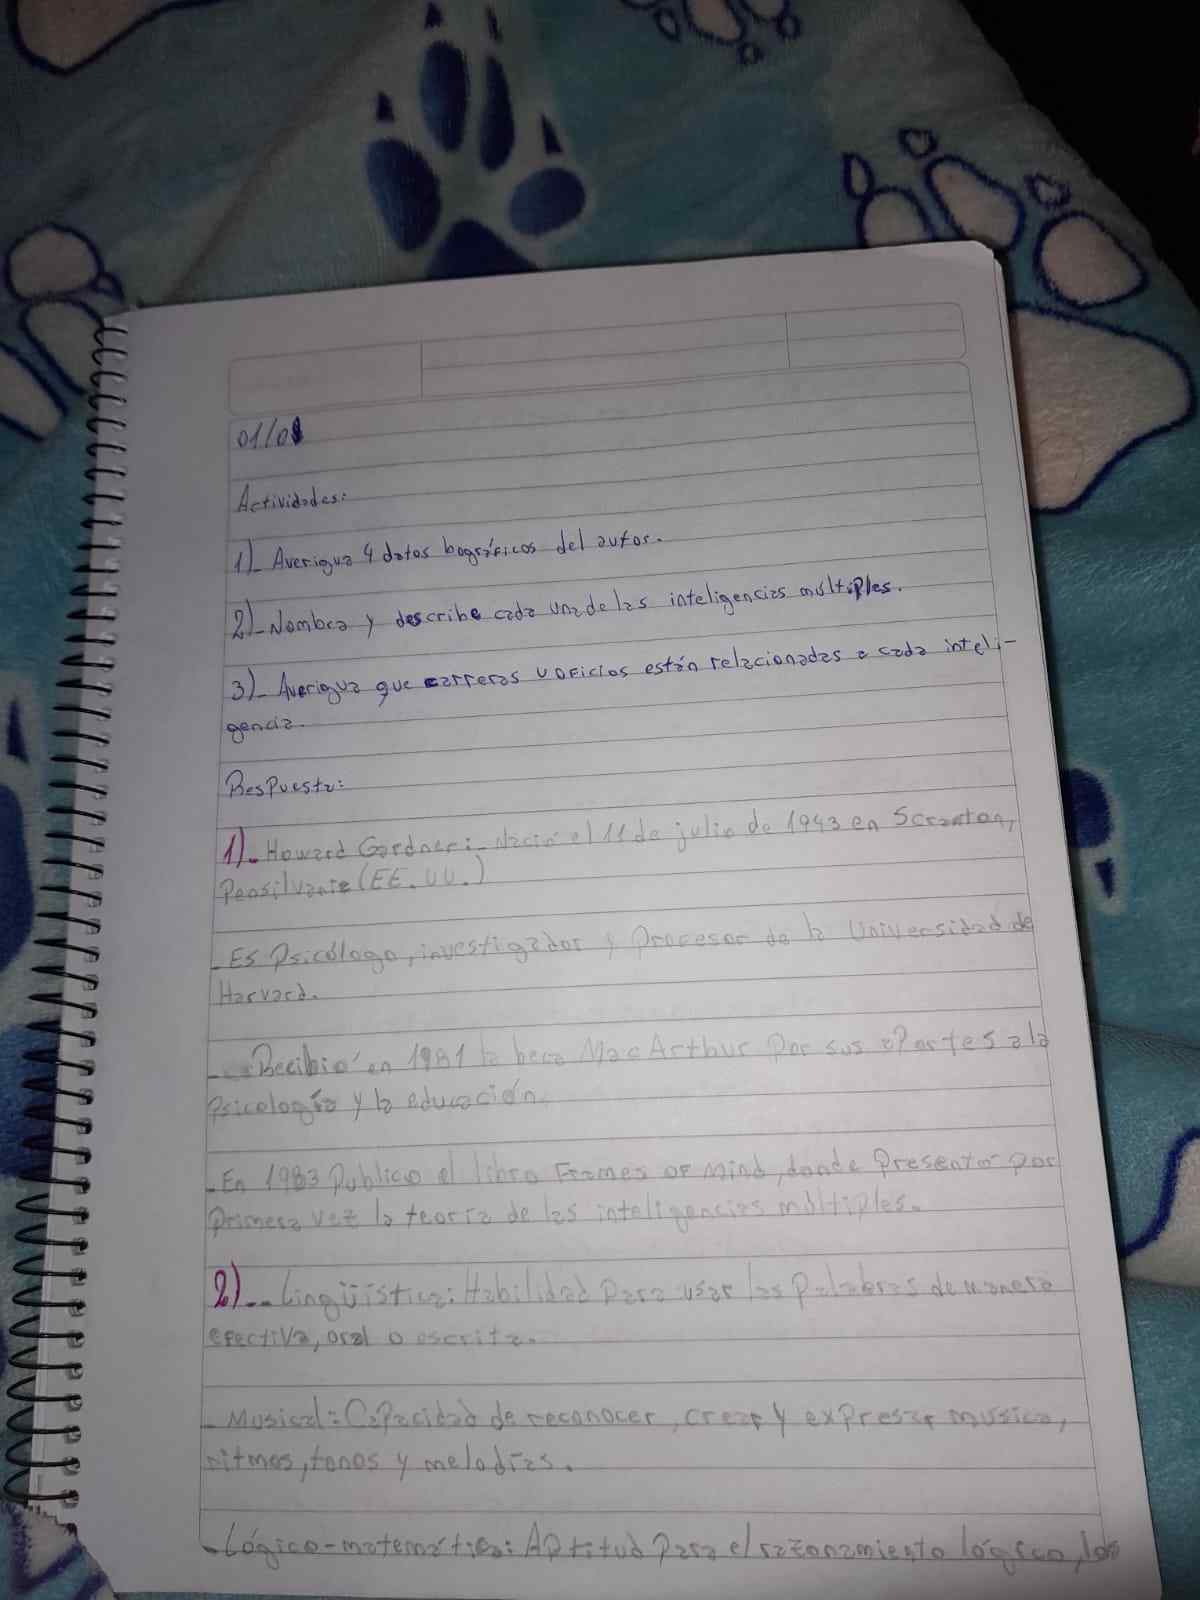 01/08
Actividades:
1)_ Averigua 4 datos bográficos del autor.
2)_ Nombra y describe cada una de las inteligencias múltiples.
3)_ Averigua que carreras u oficios están relacionadas a cada inteli-
gencia.
Respuesta:
1)_ Howard Gardner:_ Nació el 11 de julio de 1943 en Scranton,
Pensilvania (EE.UU.)
_Es Psicólogo, investigador y profesor de la Universidad de
Harvard.
_Recibió en 1981 la beca MacArthur por sus aportes a la
psicología y la educación.
_En 1983 publico el libro Frames of Mind, donde presentó por
primera vez la teoría de las inteligencias múltiples.
2)_ Lingüística: Habilidad para usar las palabras de manera
efectiva, oral o escrita.
_Musical: Capacidad de reconocer, crear y expresar música,
ritmos, tonos y melodías.
_Lógico-matemática: Aptitud para el razonamiento lógico, los